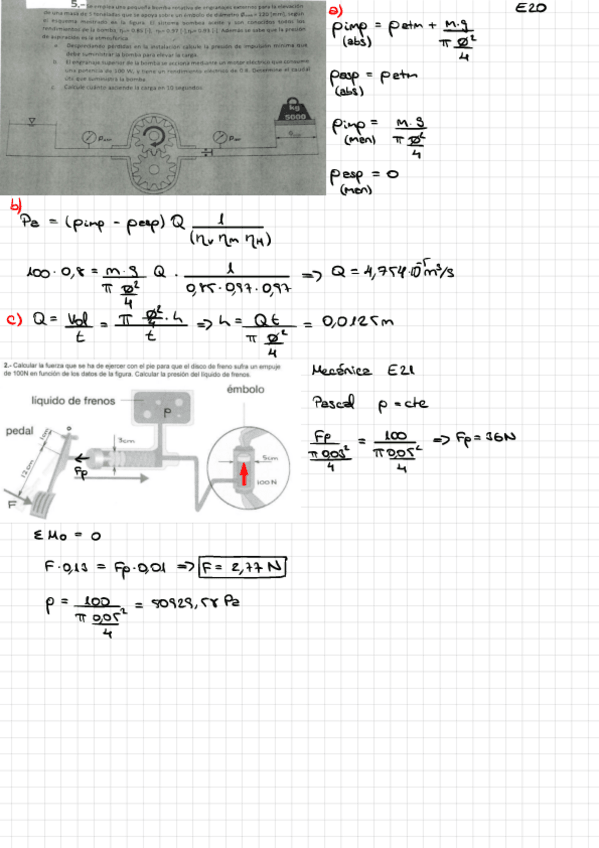 E20
5.- Se emplea una pequeña bomba rotativa de engranajes externos para la elevación
de una masa de 5 toneladas que se apoya sobre un émbolo de diámetro = 120 [mm], según
el esquema mostrado de la figura. El sistema bombea aceite y son conocidos todos los
rendimientos de la bomba, Además se sabe que la presión
de aspiración es la atmosférica.
a. Despreciando pérdidas en la instalación calcule la presión de impulsión mínima que
debe suministrar la bomba para elevar la carga.
b. El engranaje superior de la bomba se acciona mediante un motor eléctrico que consume
una potencia de 100 W, y tiene un rendimiento eléctrico de 0.8. Determine el caudal
útil que suministra la bomba.
c. Calcule cuánto asciende la carga en 10 segundos.
kg
5000
a)
pimp (abs) = patm + m·g / (π ø²/4)
pasp (abs) = patm
pimp (man) = m·g / (π ø²/4)
pasp (man) = 0
b)
Pa = (pimp - pasp) Q 1 / (ηv ηm ηH)
100·0,8 = m·g / (π ø²/4) Q · 1 / (0,85·0,97·0,97) => Q = 4,754·10⁻⁵ m³/s
c) Q = Vol / t = π ø²/4 · h / t => h = Qt / (π ø²/4) = 0,0125m
2.- Calcular la fuerza que se ha de ejercer con el pie para que el disco de freno sufra un empuje
de 100N en función de los datos de la figura. Calcular la presión del líquido de frenos.
líquido de frenos
émbolo
pedal
P
o
1cm
12cm
3cm
5cm
Fp
F
100 N
Mecánica E21
Pascal p = cte
Fp / (π 0,03²/4) = 100 / (π 0,05²/4) => Fp = 36N
Σ Mo = 0
F·0,13 = Fp·0,01 => F = 2,77 N
p = 100 / (π 0,05²/4) = 50929,58 Pa